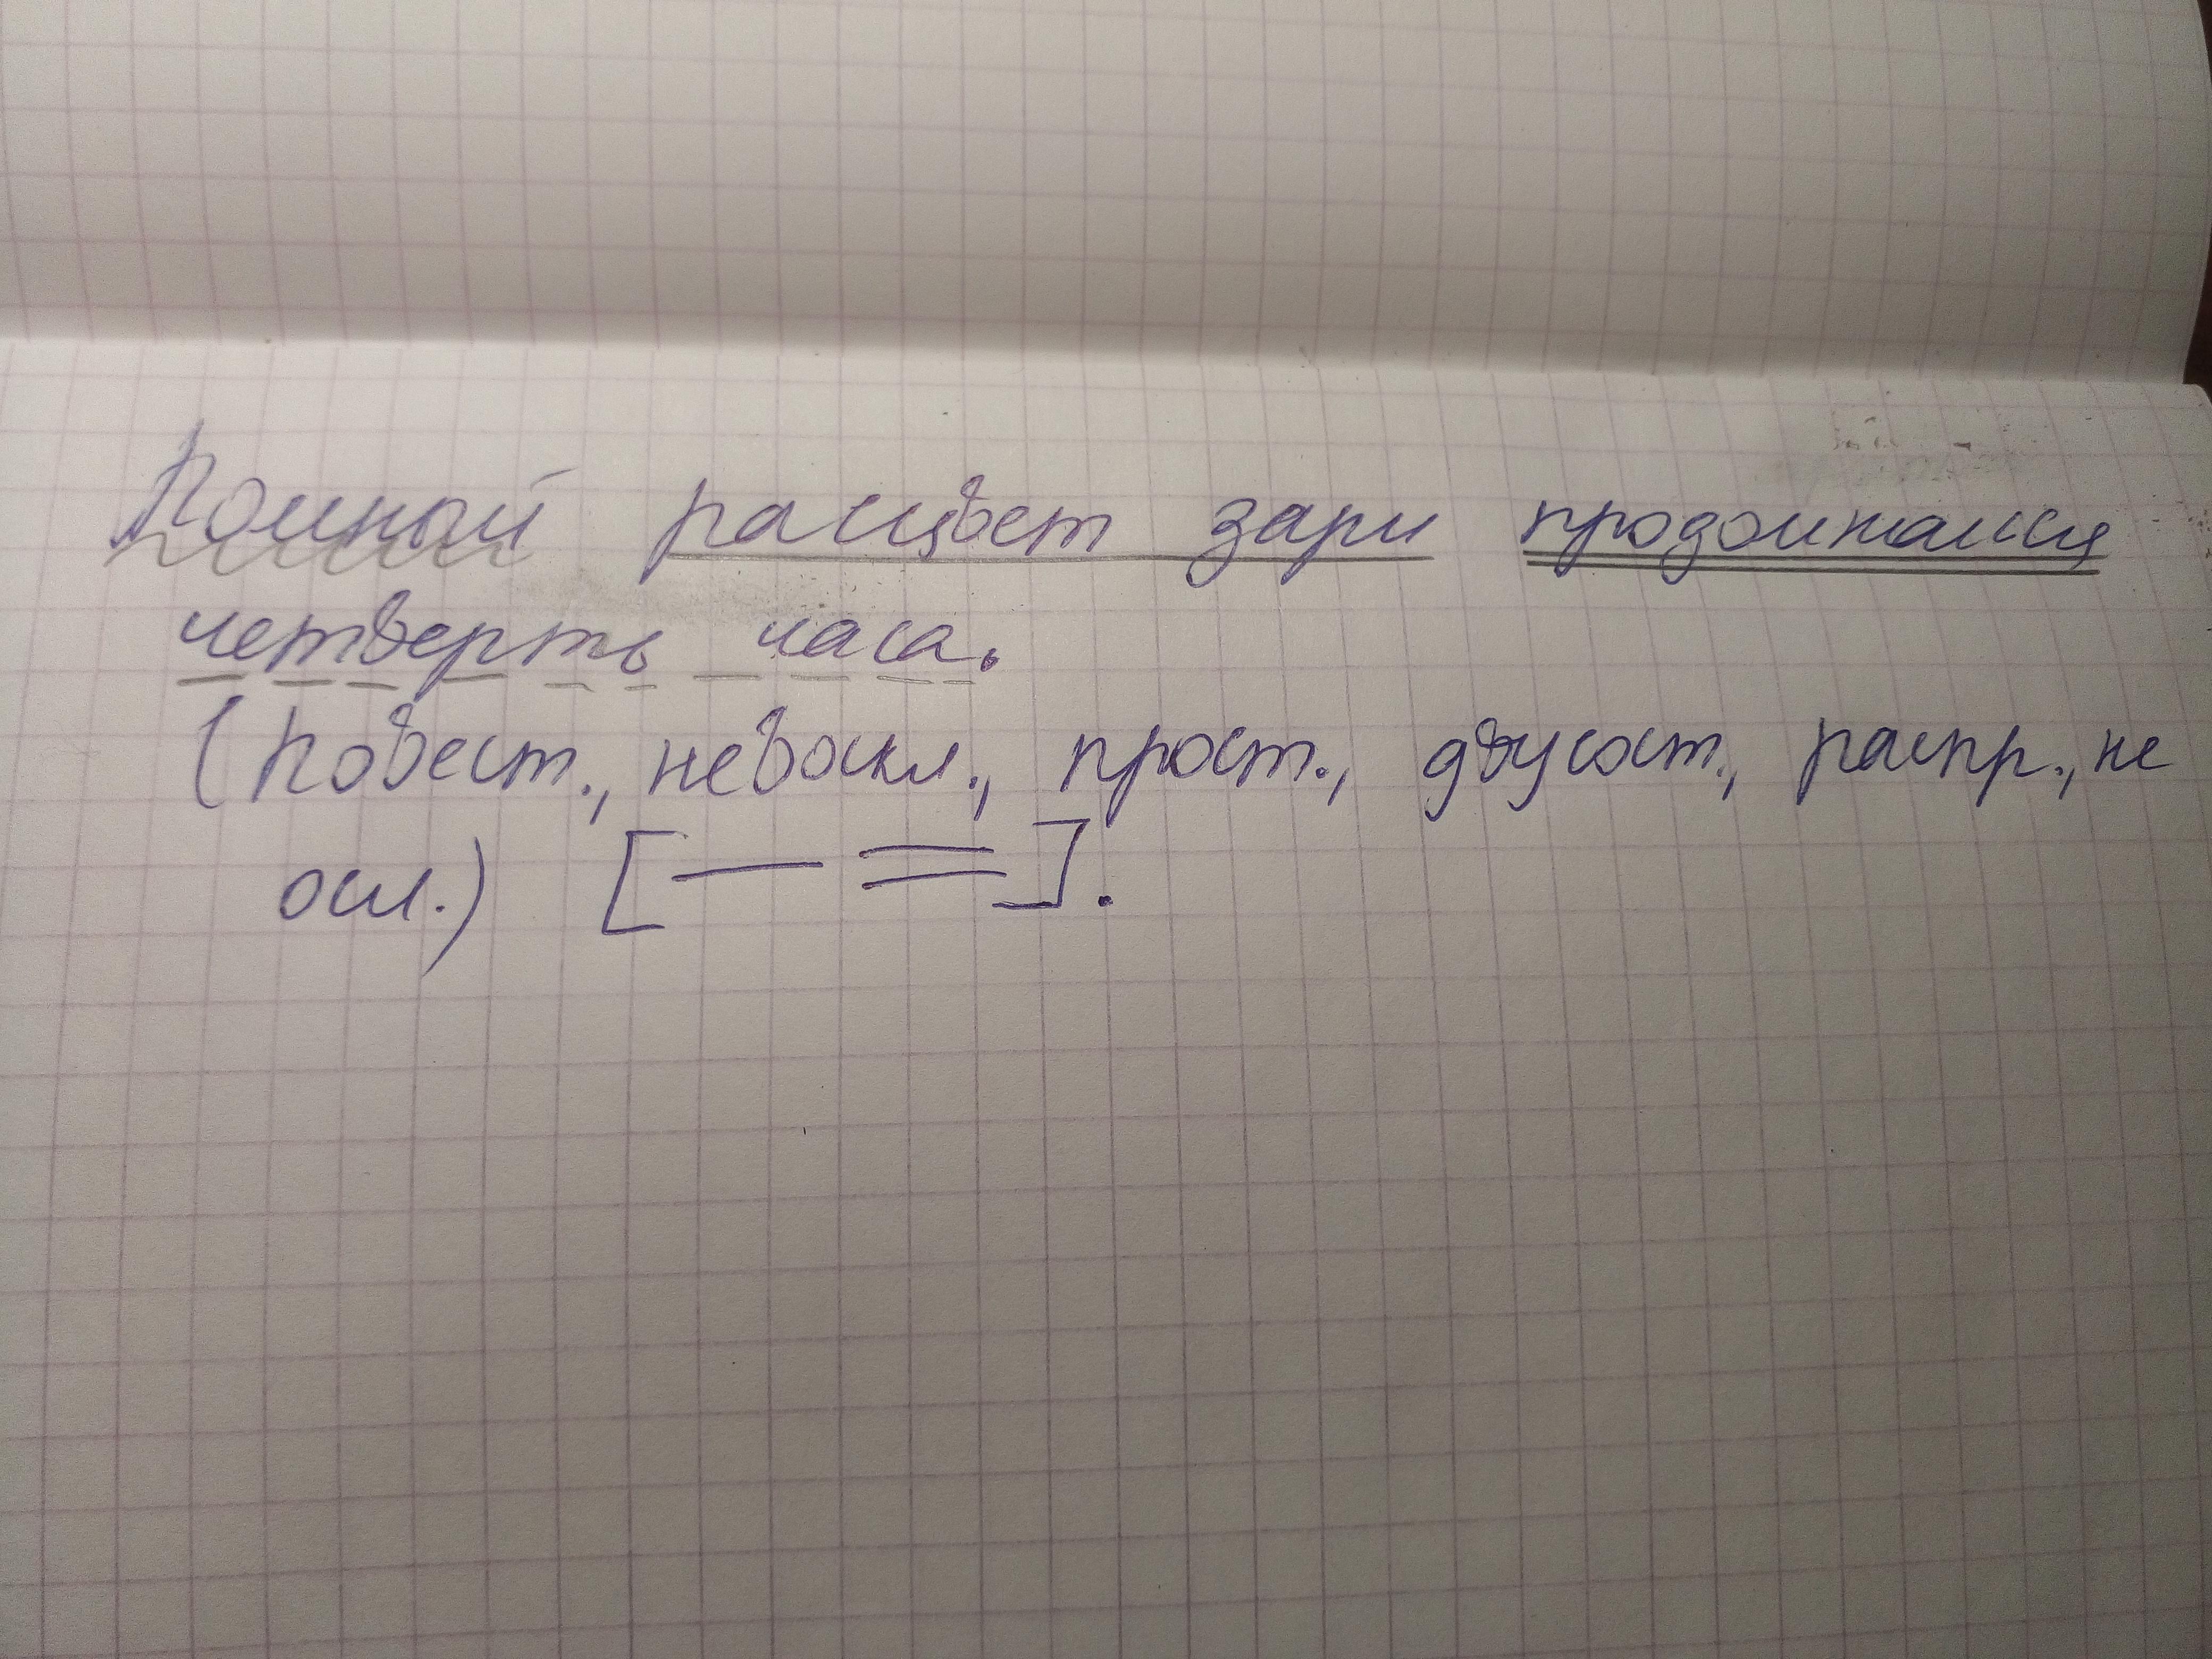 Полный расцвет зари продолжался
четверть часа.
(повест., невоскл., прост., двусост., распр., не
осл.) [— =].